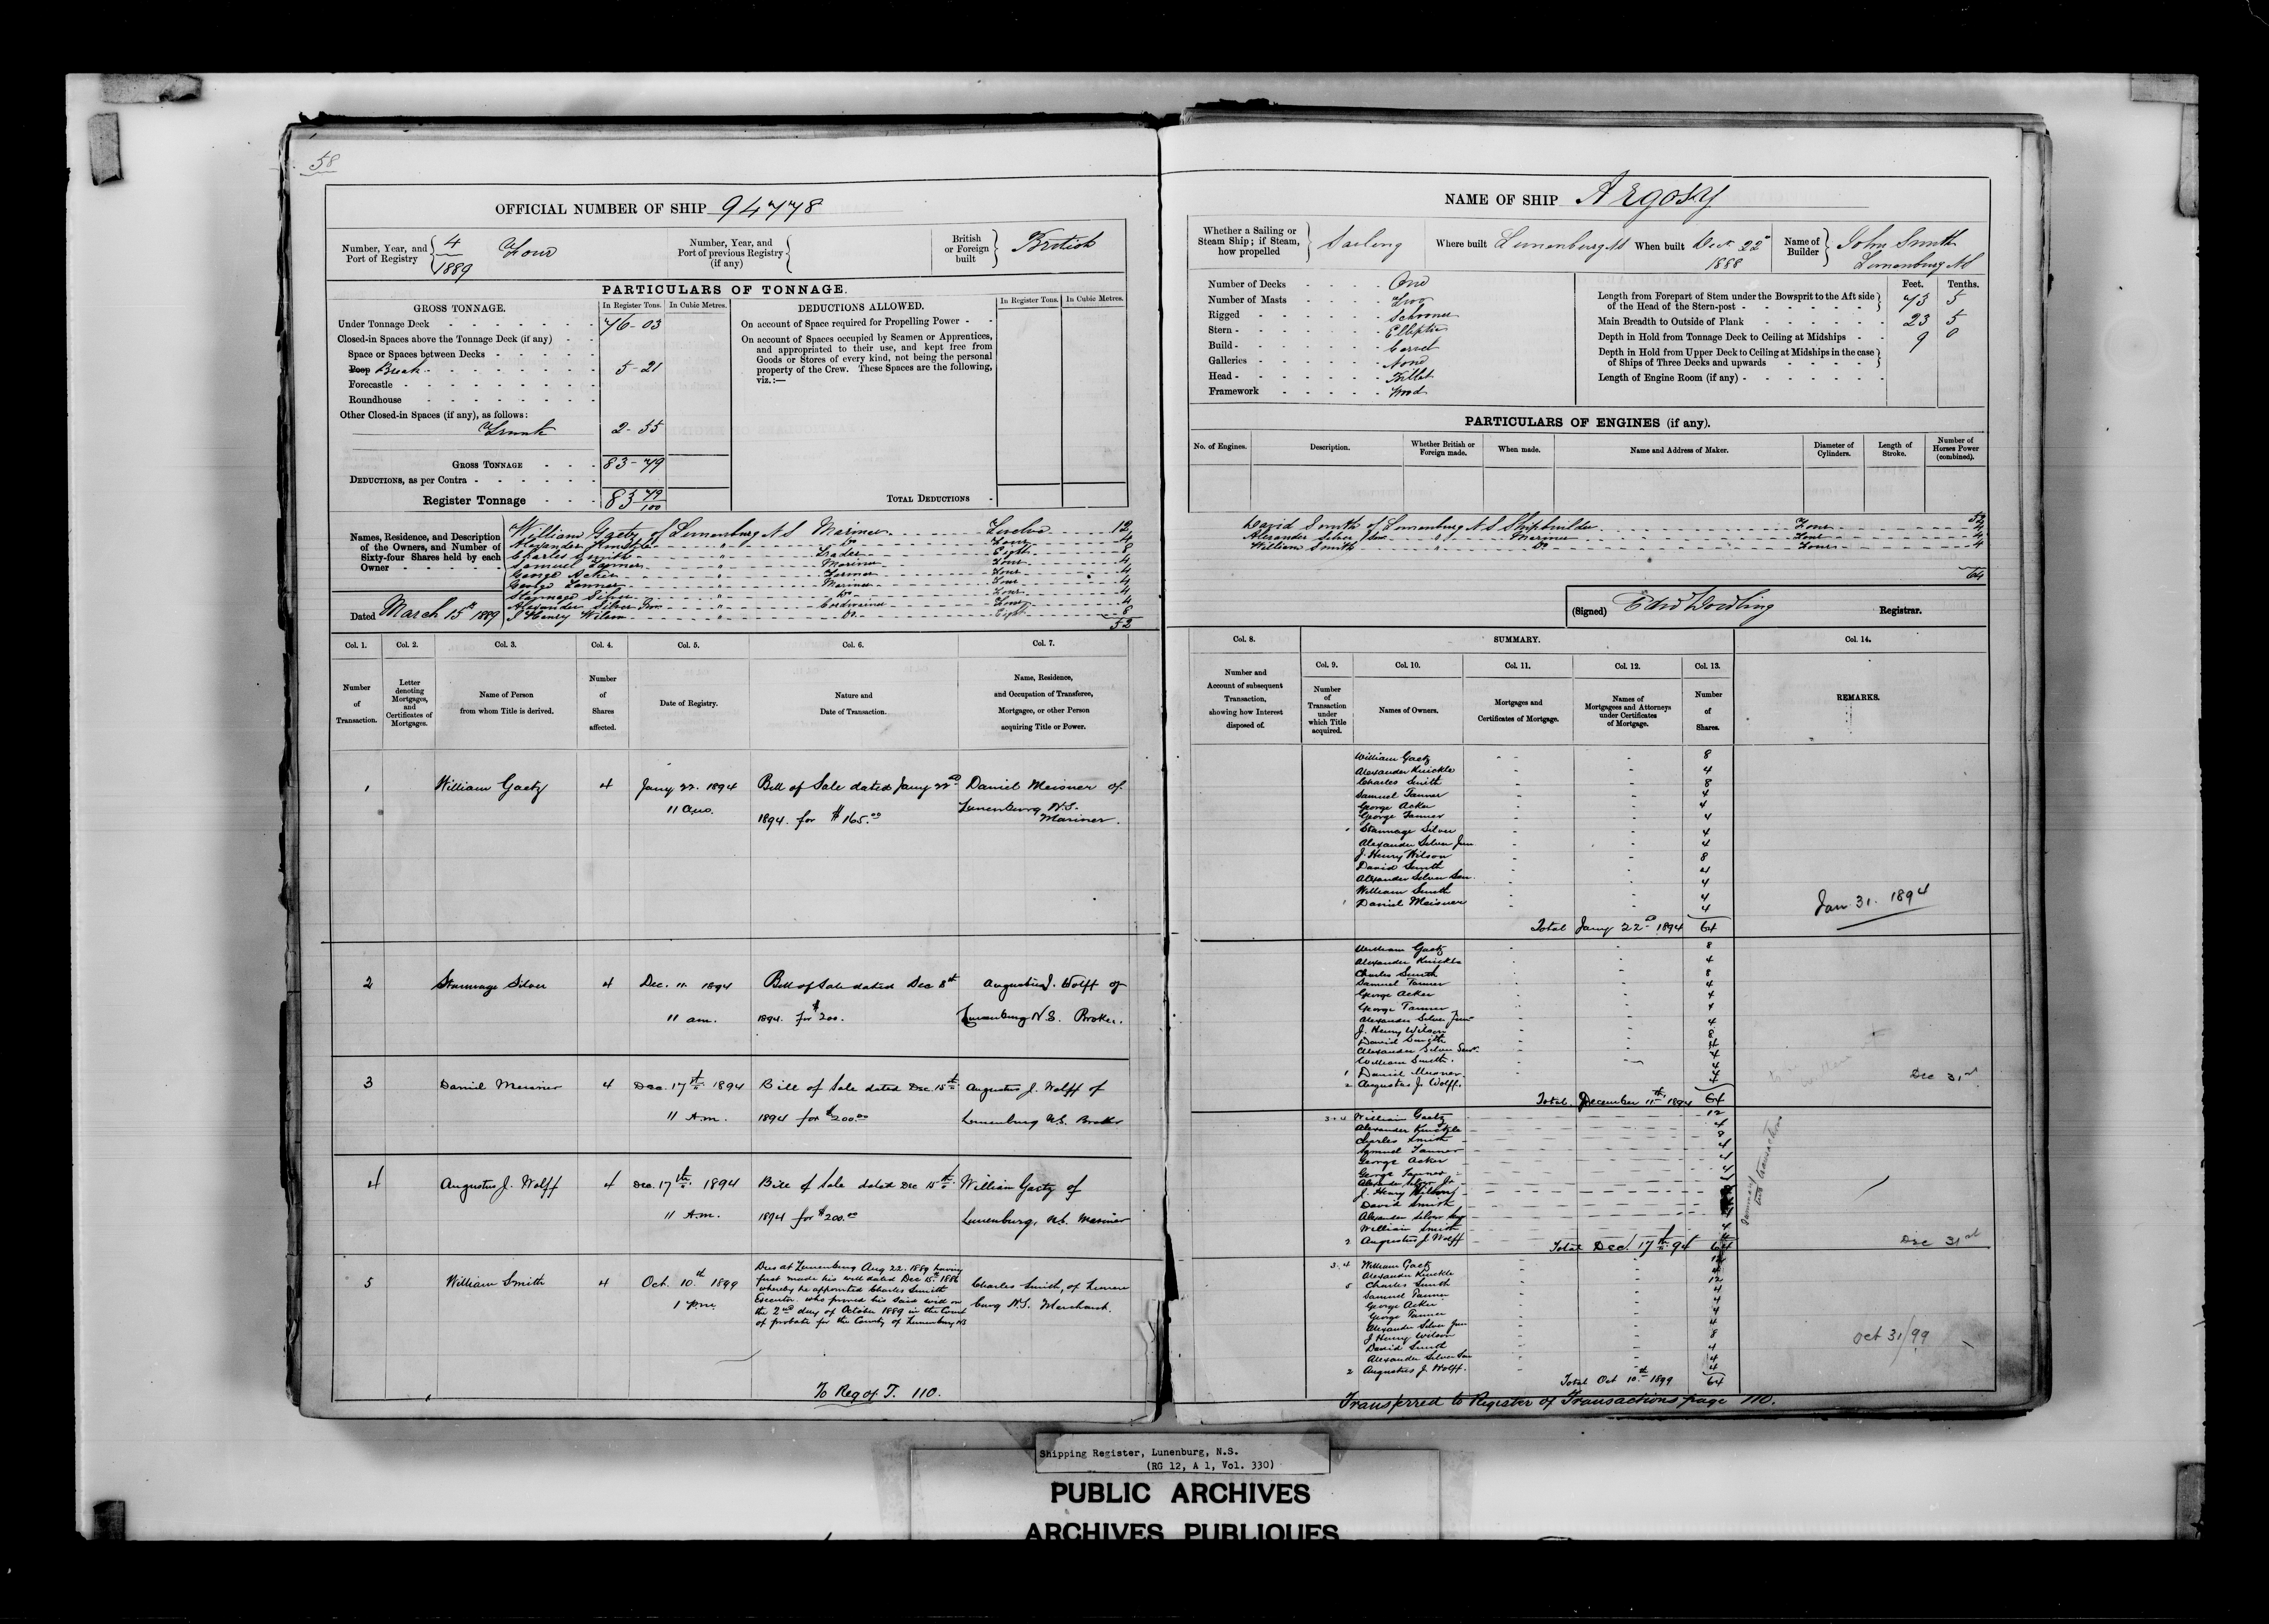 58
OFFICIAL NUMBER OF SHIP 94778
Number, Year, and Port of Registry { 4/1889 Four
Number, Year, and Port of previous Registry (if any) {
British or Foreign built } British
PARTICULARS OF TONNAGE.
GROSS TONNAGE.
In Register Tons. In Cubic Metres.
Under Tonnage Deck 76-03
Closed-in Spaces above the Tonnage Deck (if any)
Space or Spaces between Decks
Poop Break 5-21
Forecastle
Roundhouse
Other Closed-in Spaces (if any), as follows:
Trunk 2-55
GROSS TONNAGE 83-79
DEDUCTIONS, as per Contra
Register Tonnage 83 79/100
DEDUCTIONS ALLOWED.
In Register Tons. In Cubic Metres.
On account of Space required for Propelling Power
On account of Spaces occupied by Seamen or Apprentices,
and appropriated to their use, and kept free from
Goods or Stores of every kind, not being the personal
property of the Crew. These Spaces are the following,
viz.:—
TOTAL DEDUCTIONS
Names, Residence, and Description
of the Owners, and Number of
Sixty-four Shares held by each
Owner
William Gaetz of Lunenburg N S Mariner Twelve 12
Alexander Knickle " Do Four 4
Charles Smith " Trader Eight 8
Samuel Tanner " Mariner Four 4
George Acker " Farmer Four 4
George Tanner " Mariner Four 4
Stannage Silver " Do Four 4
Alexander Silver Jun " Cordwainer Four 4
J Henry Wilson " Do Eight 8
52
Dated March 15th 1889
Col. 1. Col. 2. Col. 3. Col. 4. Col. 5. Col. 6. Col. 7.
Number of Transaction.
Letter denoting Mortgages, and Certificates of Mortgages.
Name of Person from whom Title is derived.
Number of Shares affected.
Date of Registry.
Nature and Date of Transaction.
Name, Residence, and Occupation of Transferee, Mortgagee, or other Person acquiring Title or Power.
1 William Gaetz 4 Jany 22. 1894 Bill of Sale dated Jany 22nd Daniel Meisner of
11 am. 1894. for $165.00 Lunenburg N.S. Mariner.
2 Stannage Silver 4 Dec. 11 1894 Bill of Sale dated Dec 8th Augustus J. Wolff of
11 am. 1894. for $200. Lunenburg N.S. Broker.
3 Daniel Meisner 4 Dec. 17th 1894 Bill of Sale dated Dec. 15th Augustus J. Wolff of
11 A.m. 1894 for $200.00 Lunenburg N.S. Broker
4 Augustus J. Wolff 4 Dec. 17th 1894 Bill of Sale dated Dec 15th William Gaetz of
11 A.m. 1894 for $200.00 Lunenburg, N.S. Mariner
5 William Smith 4 Oct. 10th 1899
1 pm.
Dies at Lunenburg Aug 22. 1889 having
first made his will dated Dec 15th 1886
whereby he appointed Charles Smith
Executor who proved his said will on
the 2nd day of October 1889 in the Court
of probate for the County of Lunenburg NS
Charles Smith, of Lunen
burg N.S. Merchant.
To Reg of T. 110.
NAME OF SHIP Argosy
Whether a Sailing or Steam Ship; if Steam, how propelled } Sailing
Where built Lunenburg N S
When built Dec 22nd 1888
Name of Builder } John Smith Lunenburg N S
Number of Decks One
Number of Masts Two
Rigged Schooner
Stern Elliptic
Build Carvel
Galleries None
Head Billet
Framework Wood
Feet. Tenths.
Length from Forepart of Stem under the Bowsprit to the Aft side of the Head of the Stern-post 73 5
Main Breadth to Outside of Plank 23 5
Depth in Hold from Tonnage Deck to Ceiling at Midships 9 0
Depth in Hold from Upper Deck to Ceiling at Midships in the case of Ships of Three Decks and upwards
Length of Engine Room (if any)
PARTICULARS OF ENGINES (if any).
No. of Engines. Description. Whether British or Foreign made. When made. Name and Address of Maker. Diameter of Cylinders. Length of Stroke. Number of Horses Power (combined).
52
David Smith of Lunenburg N S Shipbuilder Four 4
Alexander Silver Sen " Mariner Four 4
William Smith " Do Four 4
64
(Signed) Edwd Dowling Registrar.
Col. 8. SUMMARY. Col. 14.
Col. 9. Col. 10. Col. 11. Col. 12. Col. 13.
Number and Account of subsequent Transaction, showing how Interest disposed of.
Number of Transaction under which Title acquired.
Names of Owners.
Mortgages and Certificates of Mortgage.
Names of Mortgagees and Attorneys under Certificates of Mortgage.
Number of Shares.
REMARKS.
William Gaetz 8
Alexander Knickle 4
Charles Smith 8
Samuel Tanner 4
George Acker 4
George Tanner 4
Stannage Silver 4
Alexander Silver Jun 4
J. Henry Wilson 8
David Smith 4
Alexander Silver Sen 4
William Smith 4
1 Daniel Meisner 4
Total Jany 22nd 1894 64
Jan 31. 1894
William Gaetz 8
Alexander Knickle 4
Charles Smith 8
Samuel Tanner 4
George Acker 4
George Tanner 4
Alexander Silver Jun 4
J. Henry Wilson 8
David Smith 4
Alexander Silver Senr. 4
William Smith. 4
1 Daniel Meisner. 4
2 Augustus J. Wolff. 4
Total December 11th 1894 64
Dec 31st
3.4 William Gaetz 12
Alexander Knickle 4
Charles Smith 8
Samuel Tanner 4
George Acker 4
George Tanner 4
Alexander Silver Jr
J. Henry Wilson
David Smith
Alexander Silver Sen
William Smith 4
2 Augustus J. Wolff 4
Total Dec. 17th 94 64
Summary two transactions
Dec 31st
3.4 William Gaetz 12
Alexander Knickle 4
5 Charles Smith 12
Samuel Tanner 4
George Acker 4
George Tanner 4
Alexander Silver Jun 4
J Henry Wilson 8
David Smith 4
Alexander Silver Sen 4
2 Augustus J. Wolff. 4
Total Oct 10th 1899 64
Oct 31/99
Transferred to Register of Transactions page 110.
Shipping Register, Lunenburg, N.S.
(RG 12, A 1, Vol. 330)
PUBLIC ARCHIVES
ARCHIVES PUBLIQUES